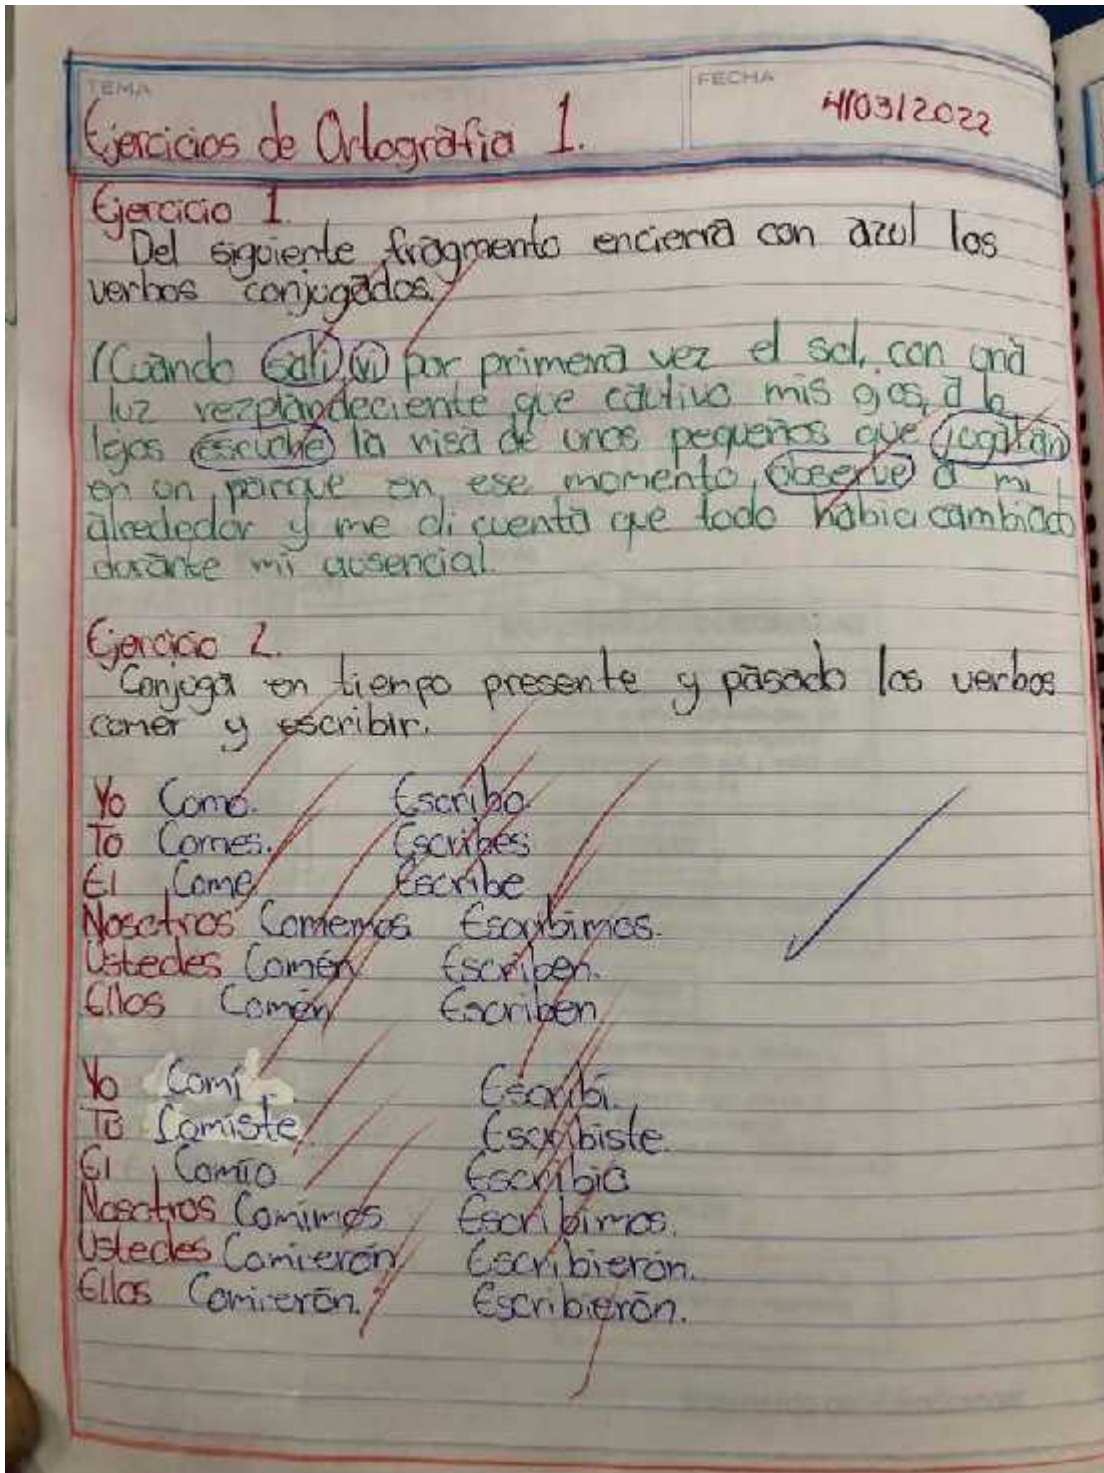 TEMA
FECHA
Ejercicios de Ortografia 1.
4/03/2022
Ejercicio 1.
Del siguiente fragmento encierra con azul los
verbos conjugados.
(Cuando sali, vi por primera vez el sol, con una
luz rezplandeciente que cautivo mis ojos, a lo
lejos escuche la risa de unos pequeños que jugaban
en un parque en ese momento, observe a mi
alrededor y me di cuenta que todo habia cambiado
durante mi ausencia).
Ejercicio 2.
Conjuga en tiempo presente y pasado los verbos
comer y escribir.
Yo Como. Escribo.
Tú Comes. Escribes
El Come Escribe
Nosotros Comemos Escribimos.
Ustedes Comen Escriben.
Ellos Comen Escriben
Yo Comí Escribí.
Tú Comiste Escribiste.
El Comío Escribio
Nosotros Comimos Escribimos.
Ustedes Comieron Escribieron.
Ellos Comieron. Escribieron.